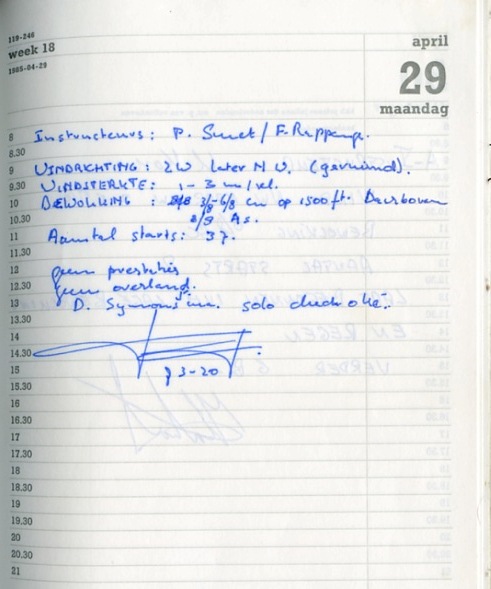 119-246
week 18
1985-04-29
april
29
maandag
8 Instructeurs: P. Smet / F.
8.30
9 WINDRICHTING: ZW later N W. (geruimd).
9.30 WINDSTERKTE: 1 - 3 m/sec.
10 BEWOLKING: 3/8 - 6/8 cu op 1500 ft. Daarboven
10.30 8/8 As.
11 Aantal starts: 37.
11.30
12 geen prestaties
12.30 geen overland.
13 D. solo check oké.
13.30
14
14.30
15
15.30
16
16.30
17
17.30
18
18.30
19
19.30
20
20.30
21